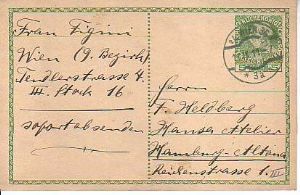 Frau Figini
Wien (9. Bezirk)
Tendlerstrasse 4.
III. Stock 16
sofort absenden
Herrn
F. Heldberg
Hansa Atelier
Hamburg-Altona
Reichenstrasse 1 III